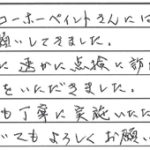 コーホーペイントさんには
願いしてきました。
に速かに点検に訪
をいただきました。
も丁寧に実施いただ
いてもよろしくお願い